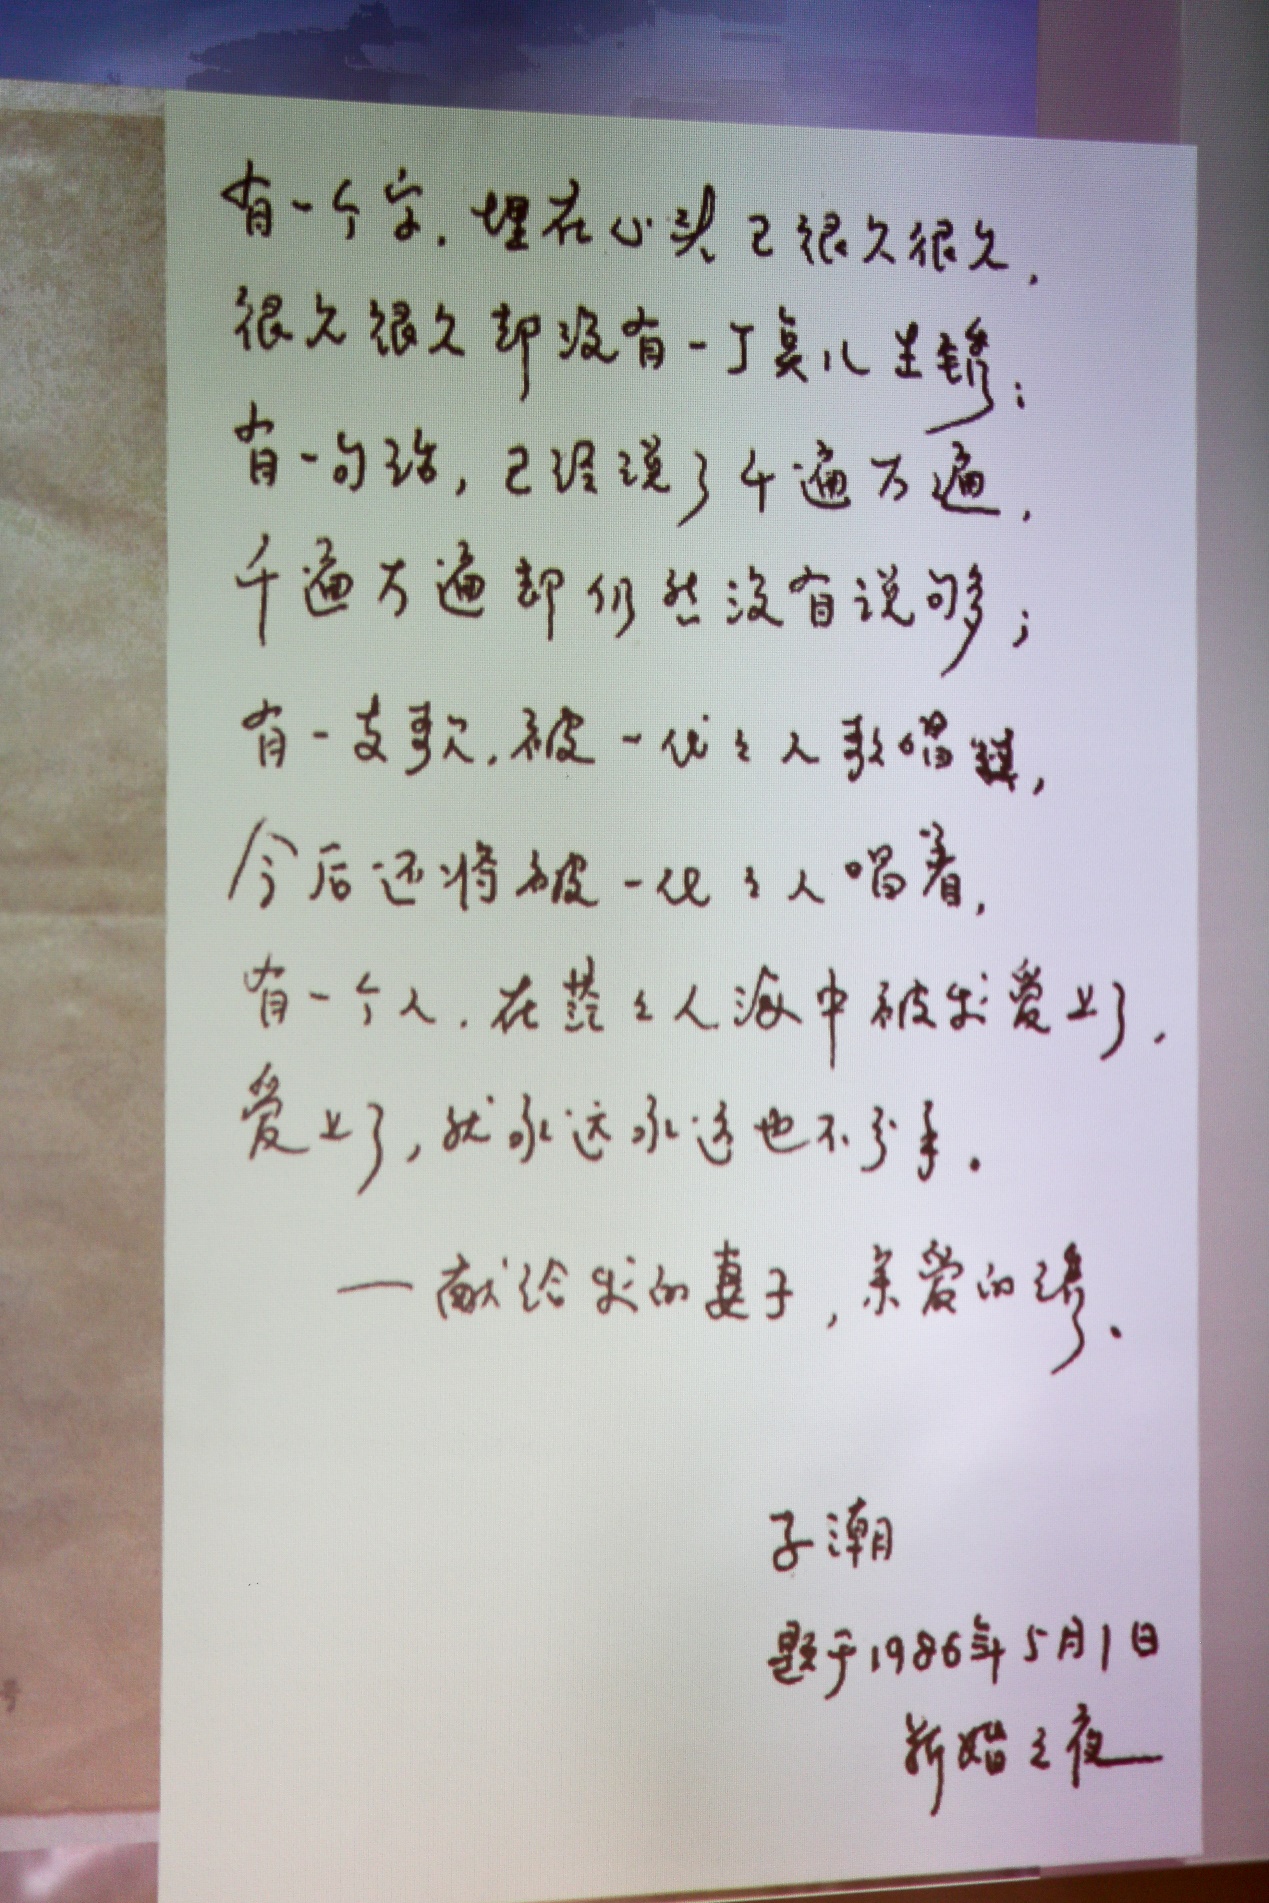 有一个字，埋在心头已很久很久，
很久很久却没有一丁莫儿生锈；
有一句话，已经说了千遍万遍，
千遍万遍却仍然没有说够；
有一支歌，被一代々人歌唱
今后还将被一代々人唱着，
有一个人，在茫々人海中被我爱上了，
爱上了，就永远永远也不分手。
—献给我的妻子，亲爱的
子潮
题于1986年5月1日
新婚之夜